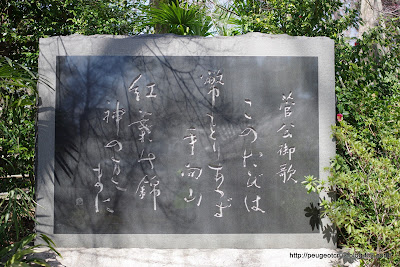 菅公御歌
このたびは
幣もとりあへず
手向山
紅葉の錦
神のまに
まに